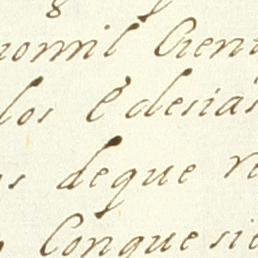 nomil Cient
los Eclesias
os deque re
Conque sie